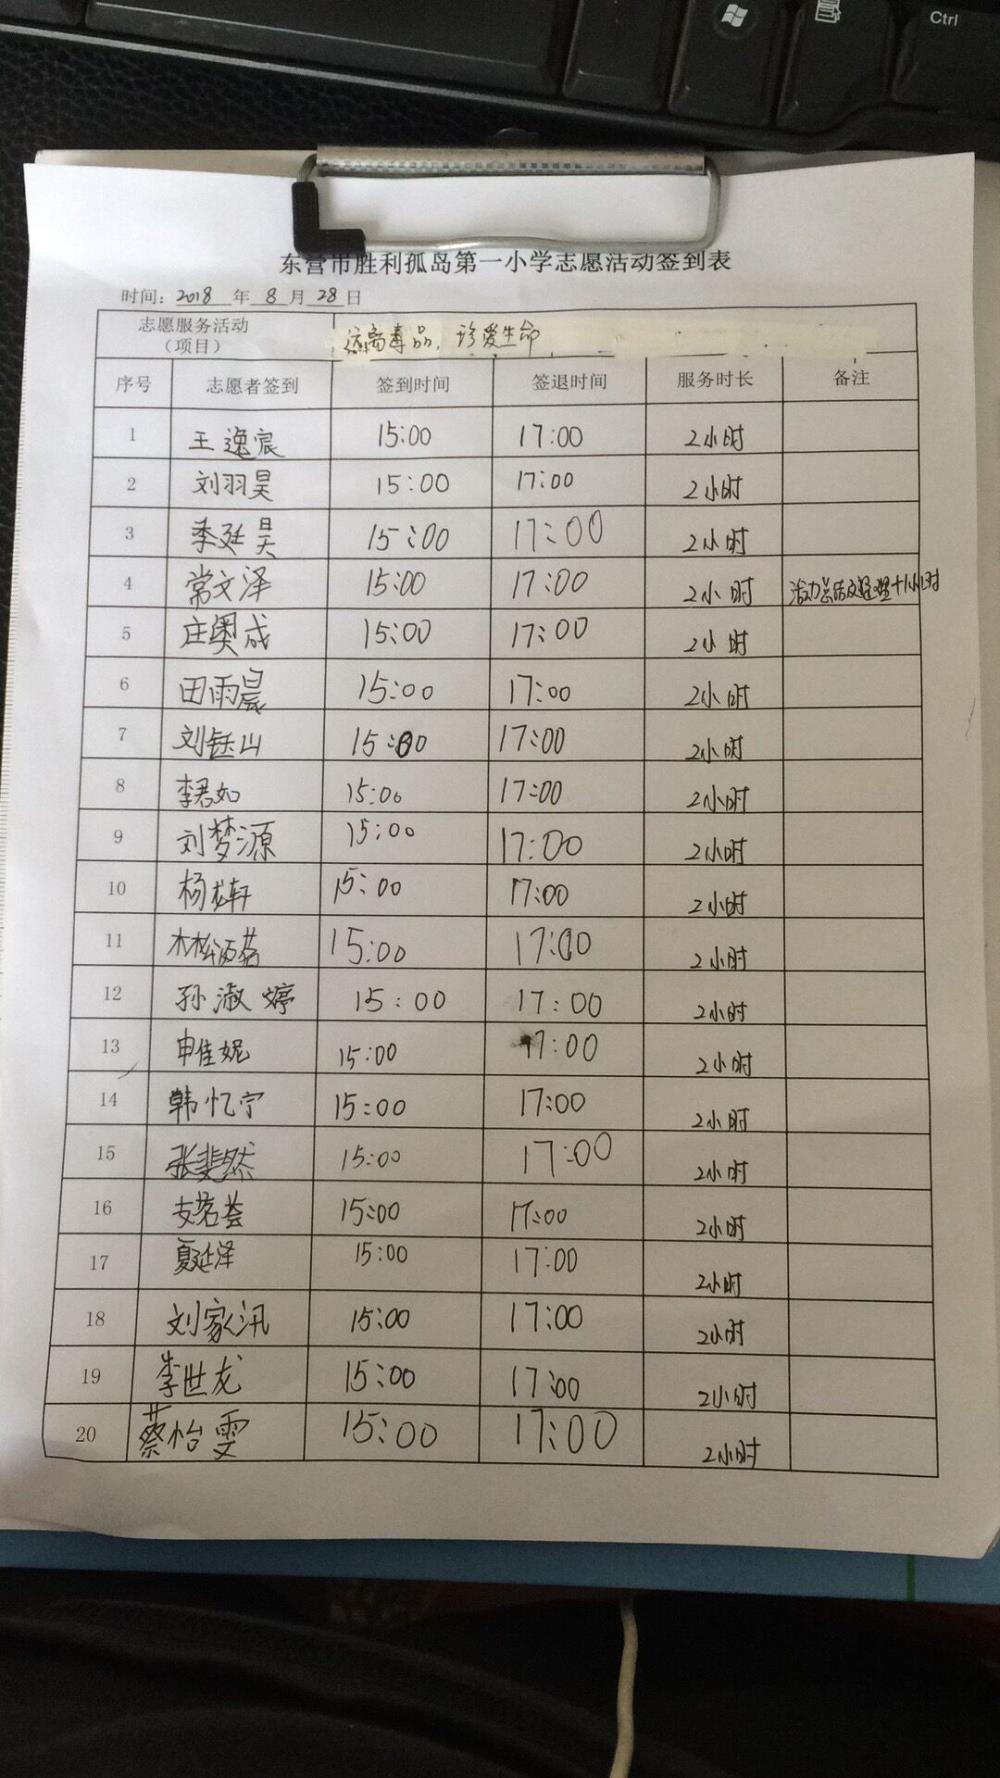 Ctrl
东营市胜利孤岛第一小学志愿活动签到表
时间：2018 年 8 月 28 日
志愿服务活动
（项目） 远离毒品，珍爱生命
序号 志愿者签到 签到时间 签退时间 服务时长 备注
1 王逸宸 15:00 17:00 2小时
2 刘羽昊 15:00 17:00 2小时
3 季廷昊 15:00 17:00 2小时
4 常文泽 15:00 17:00 2小时 活动总结及整理+1小时
5 庄奥成 15:00 17:00 2小时
6 田雨晨 15:00 17:00 2小时
7 刘钰山 15:00 17:00 2小时
8 李君如 15:00 17:00 2小时
9 刘梦源 15:00 17:00 2小时
10 15:00 17:00 2小时
11 15:00 17:00 2小时
12 孙淑婷 15:00 17:00 2小时
13 申佳妮 15:00 17:00 2小时
14 韩忆宁 15:00 17:00 2小时
15 张斐然 15:00 17:00 2小时
16 支茗荟 15:00 17:00 2小时
17 夏延泽 15:00 17:00 2小时
18 刘家汛 15:00 17:00 2小时
19 李世龙 15:00 17:00 2小时
20 蔡怡雯 15:00 17:00 2小时